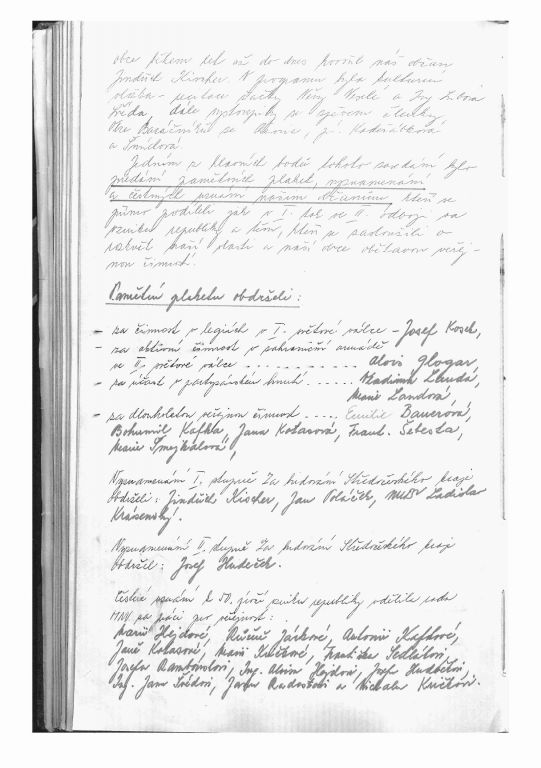 obce během let až do dnes kreslil náš občan
Jindřich Kircher. V programu byla kulturní
vložka - recitace žačky Věry Veselé a Ivy
dále vystoupily se zpěvem členky
Obce Baráčníků se p. Kadeřábková
a Šmídová.
Jedním z hlavních bodů tohoto zasedání bylo
předání pamětních plaket, vyznamenání
a čestných uznání našim občanům, kteří se
přímo podíleli jak v I. tak ve II. odboji za
vznik republiky a těm, kteří se zasloužili o
rozkvět naší vlasti a naší obce obětavou veřej-
nou činností.
Pamětní plaketu obdrželi:
- za činnost v legiích v I. světové válce - Josef Kosek,
- za aktivní činnost v zahraniční armádě
ve II. světové válce - - - - - - - - - - - Alois Glogar,
- za účast v partyzánském hnutí - - - - - - Vladimír
Marie Landová,
- za dlouholetou veřejnou činnost - - - - Emilie Bauerová,
Bohumil Kafka, Jana Kotasová, Frant. Šebesta,
Marie Smejkalová,
Vyznamenání I. stupně Za budování Středočeského kraje
obdrželi: Jindřich Kircher, Jan Poláček, MUDr Ladislav
Krásenský.
Vyznamenání II. stupně Za budování Středočeského kraje
obdržel: Josef Hudeček.
Čestné uznání k 50. výročí vzniku republiky udělila rada
MNV za práci pro veřejnost:
Marii Hejdové, Růženě Jarkové, Antonii Kafkové,
Janě Kotasové, Marii Kučkové, Františku Sedláčkovi,
Josefu Ing. Aloisu Hejdovi, Josefu
Ing. Janu